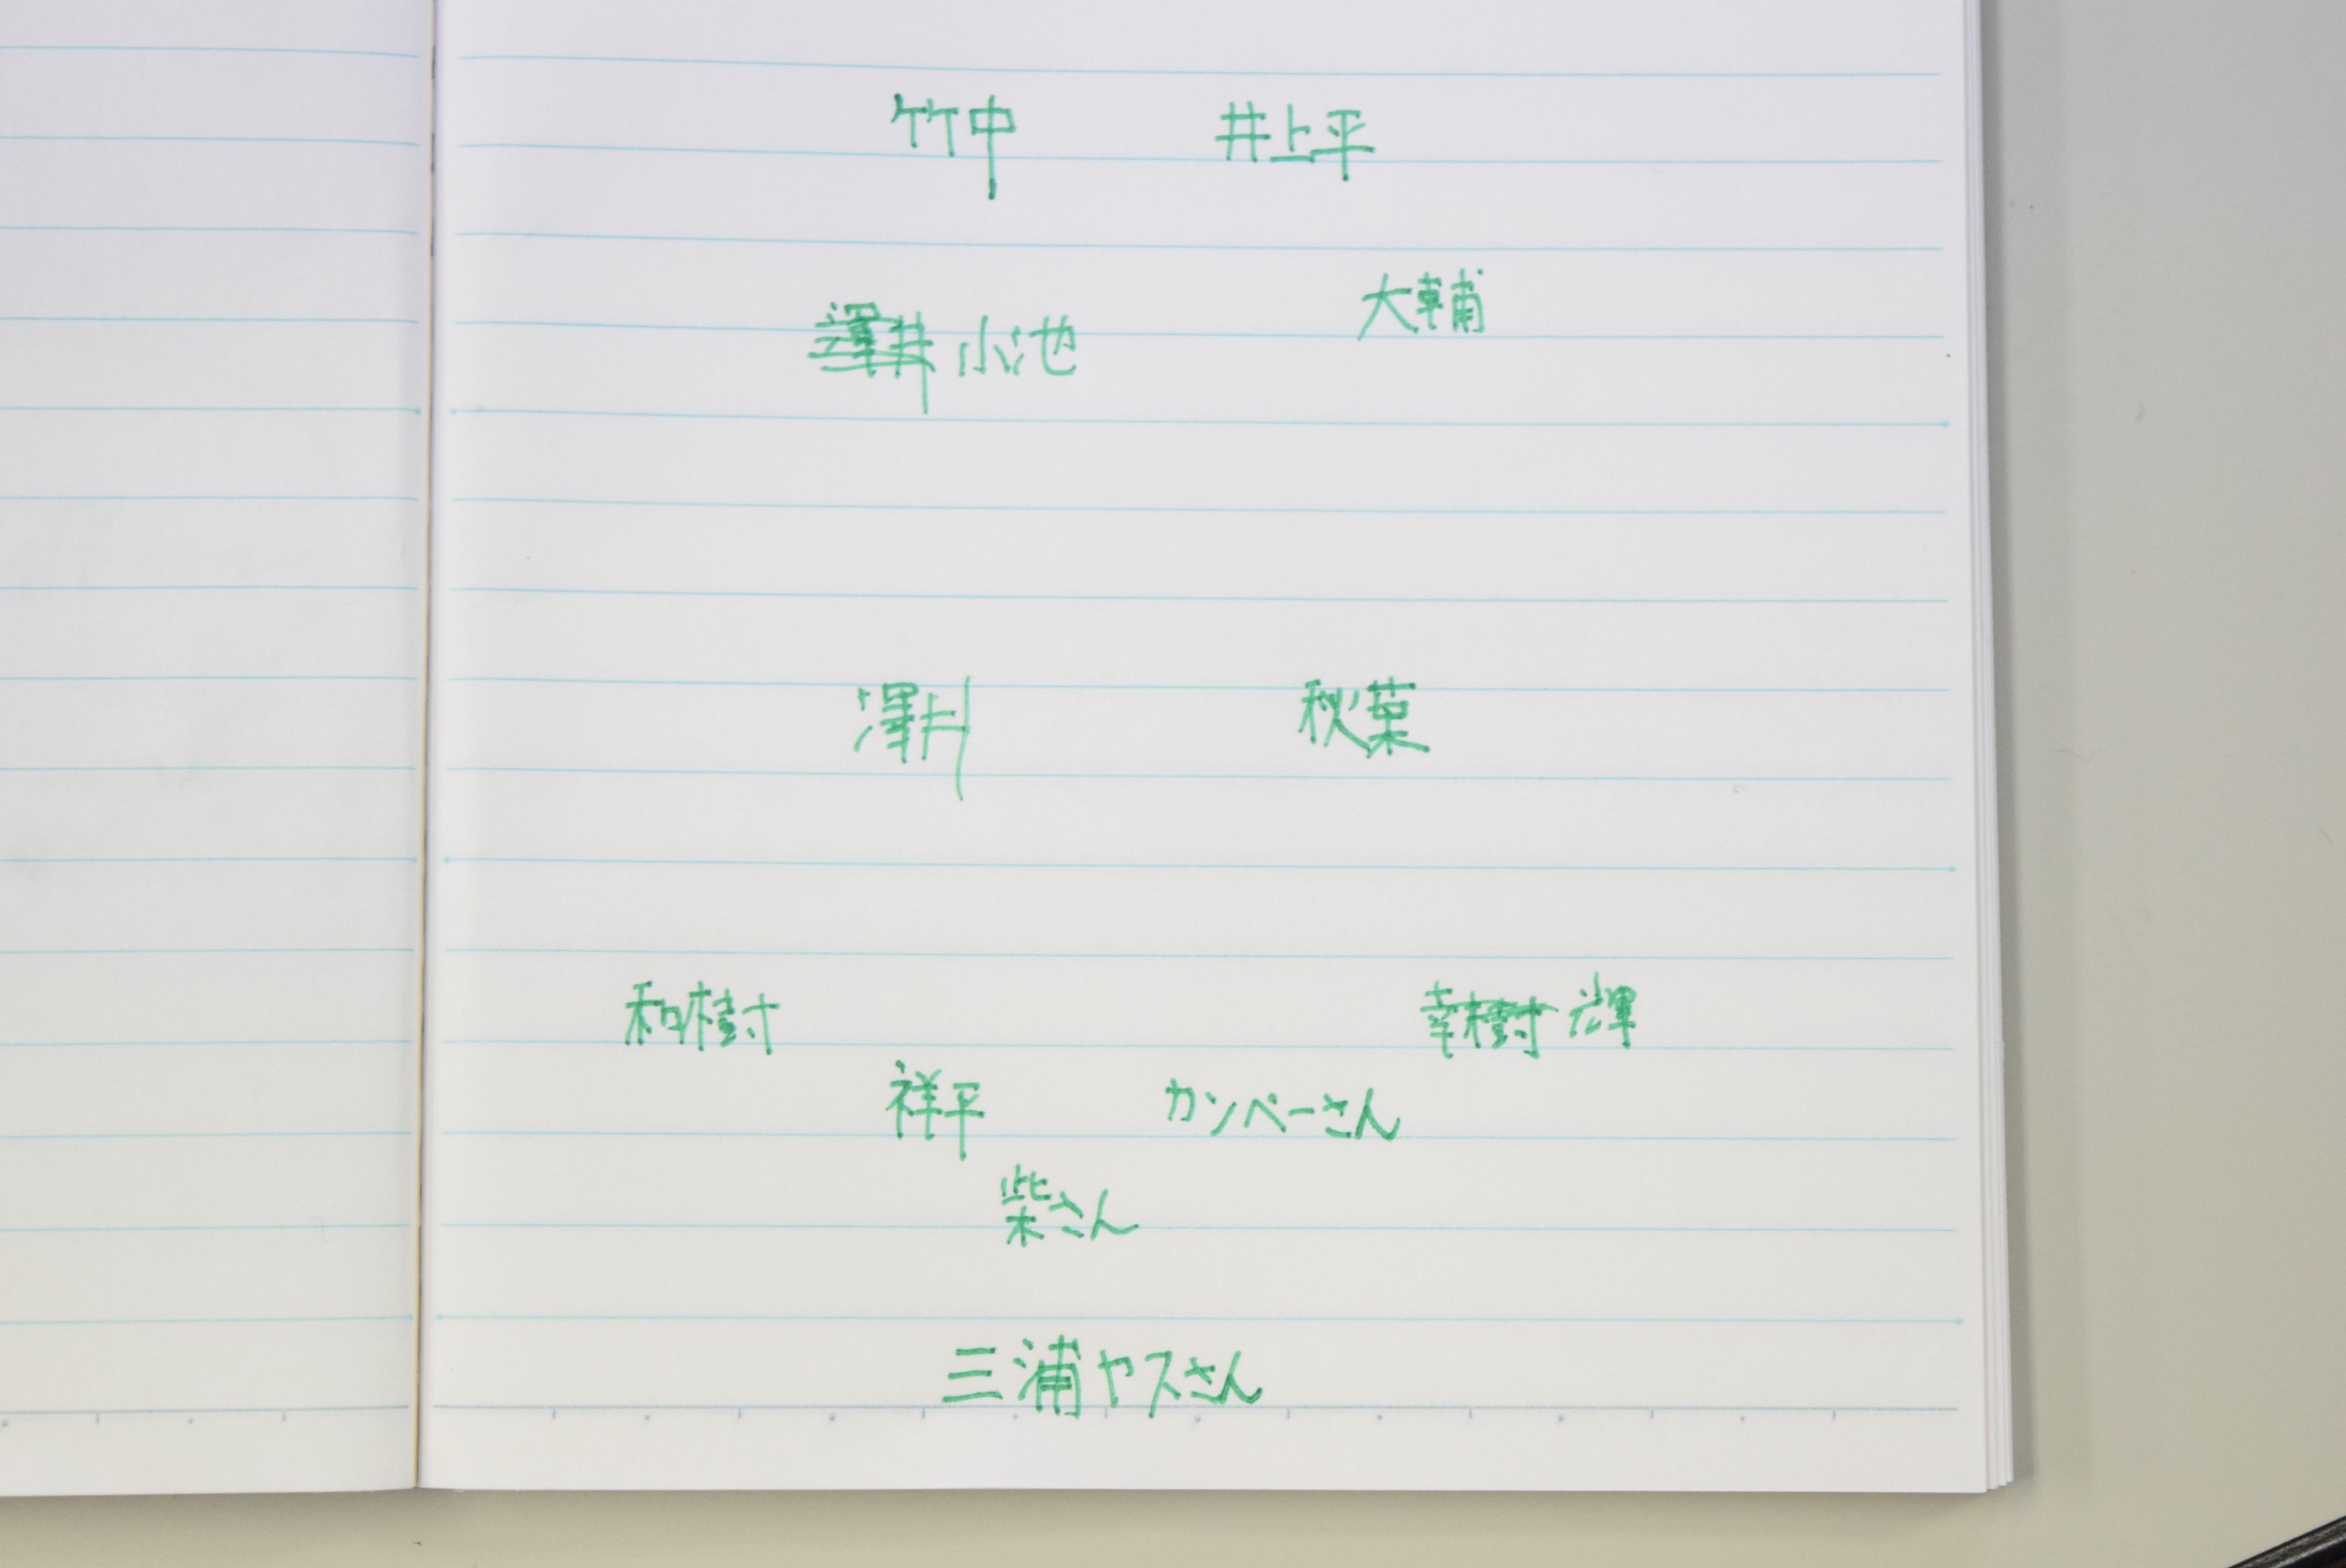 竹中 井上平
大輔
澤井 小池
澤井 秋葉
和樹 幸樹 輝
祥平 カンペーさん
柴さん
三浦ヤスさん